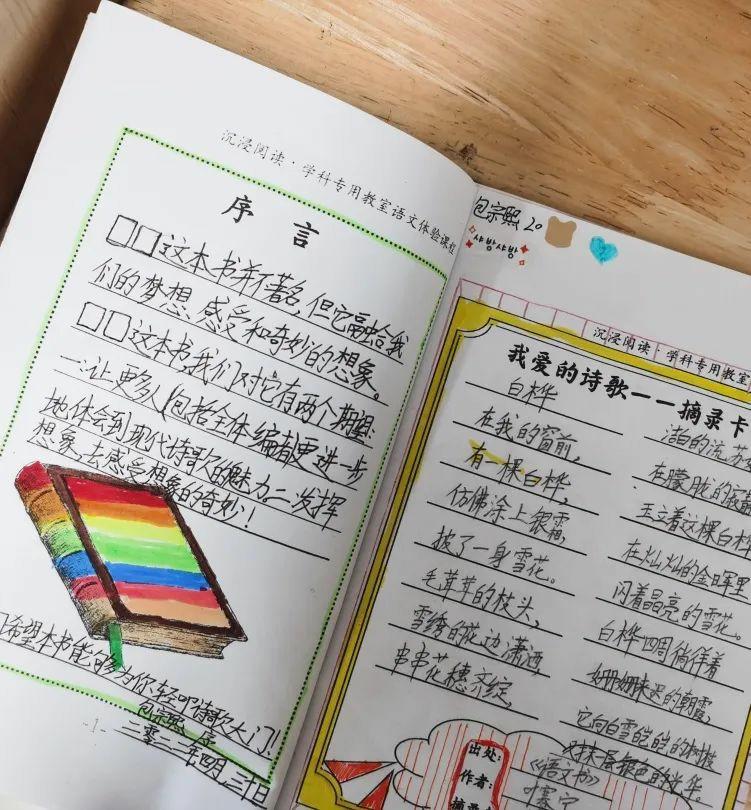 沉浸阅读·学科专用教室语文体验课程
序 言
□□这本书并不著名,但它融给我
们的梦想、感受和奇妙的想象。
□□这本书,我们对它有两个期望:
一:让更多人(包括全体编者)更进一步
地体会到现代诗歌的魅力二:发挥
想象,去感受想象的奇妙!
希望本书能够为你轻叩诗歌大门!
包宗熙 序
二零二二年四月三十日
-1-
包宗熙 20
샤방샤방
沉浸阅读 学科专用教室
我爱的诗歌——摘录卡
白桦
在我的窗前,
有一棵白桦,
仿佛涂上银霜,
披了一身雪花。
毛茸茸的枝头,
雪绣的花边潇洒,
串串花穗齐绽,
洁白的流苏
在朦胧的寂
玉立着这棵白桦
在灿灿的金晖里
闪着晶亮的雪花。
白桦四周徜徉着
姗姗来迟的朝霞,
它向白雪皑皑的树枝
又抹一层银色的光华
出处:
《语文书》
作者:
摘录